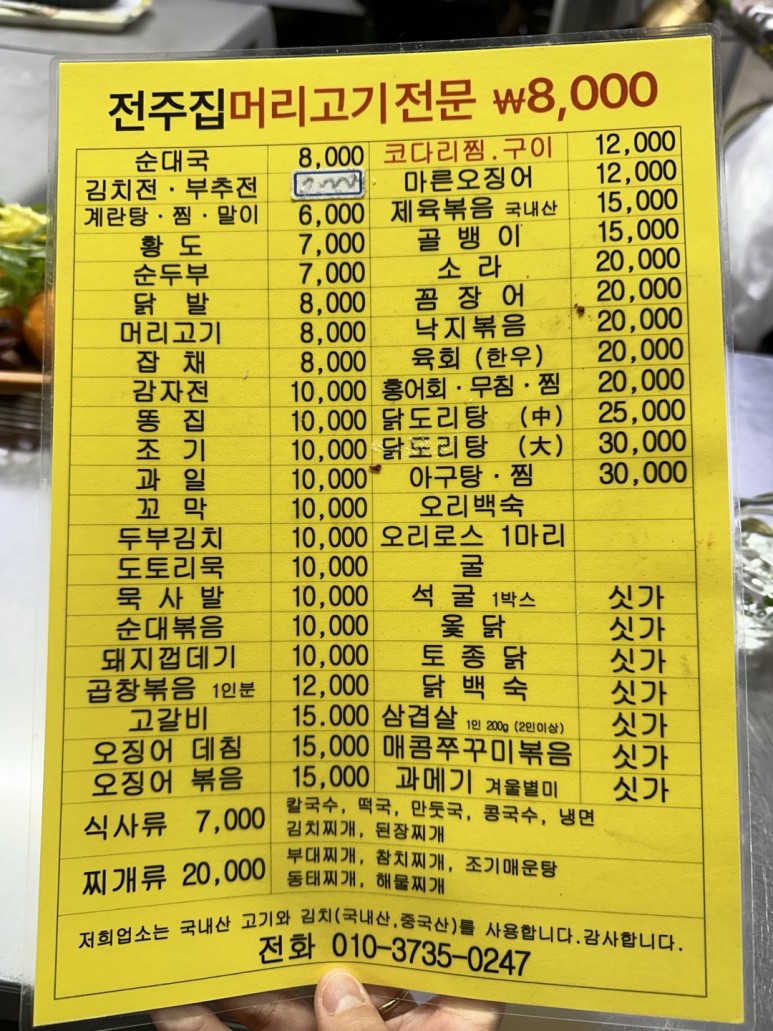 전주집머리고기전문 ₩8,000
순대국 8,000 코다리찜.구이 12,000
김치전·부추전 마른오징어 12,000
계란탕·찜·말이 6,000 제육볶음 국내산 15,000
황 도 7,000 골 뱅 이 15,000
순두부 7,000 소 라 20,000
닭 발 8,000 꼼 장 어 20,000
머리고기 8,000 낙지볶음 20,000
잡 채 8,000 육회 (한우) 20,000
감자전 10,000 홍어회·무침·찜 20,000
똥 집 10,000 닭도리탕 (中) 25,000
조 기 10,000 닭도리탕 (大) 30,000
과 일 10,000 아구탕·찜 30,000
꼬 막 10,000 오리백숙
두부김치 10,000 오리로스 1마리
도토리묵 10,000 굴
묵 사 발 10,000 석 굴 1박스 싯가
순대볶음 10,000 옻 닭 싯가
돼지껍데기 10,000 토 종 닭 싯가
곱창볶음 1인분 12,000 닭 백 숙 싯가
고갈비 15.000 삼겹살 1인 200g (2인이상) 싯가
오징어 데침 15,000 매콤쭈꾸미볶음 싯가
오징어 볶음 15,000 과메기 겨울별미 싯가
식사류 7,000 칼국수, 떡국, 만둣국, 콩국수, 냉면
김치찌개, 된장찌개
찌개류 20,000 부대찌개, 참치찌개, 조기매운탕
동태찌개, 해물찌개
저희업소는 국내산 고기와 김치(국내산,중국산)를 사용합니다.감사합니다.
전화 010-3735-0247